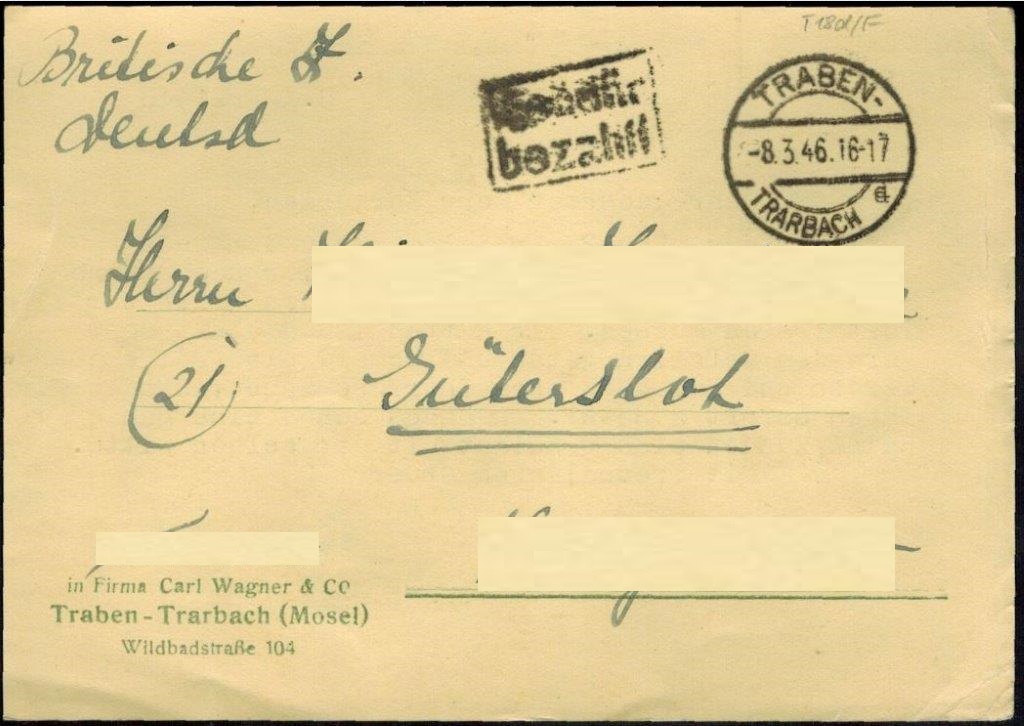 T180d/F
Britische Z.
Deutsd
Gebühr
bezahlt
TRABEN-
-8.3.46.16-17
d
TRARBACH
Herrn
(21) Gütersloh
in Firma Carl Wagner & Co
Traben-Trarbach (Mosel)
Wildbadstraße 104